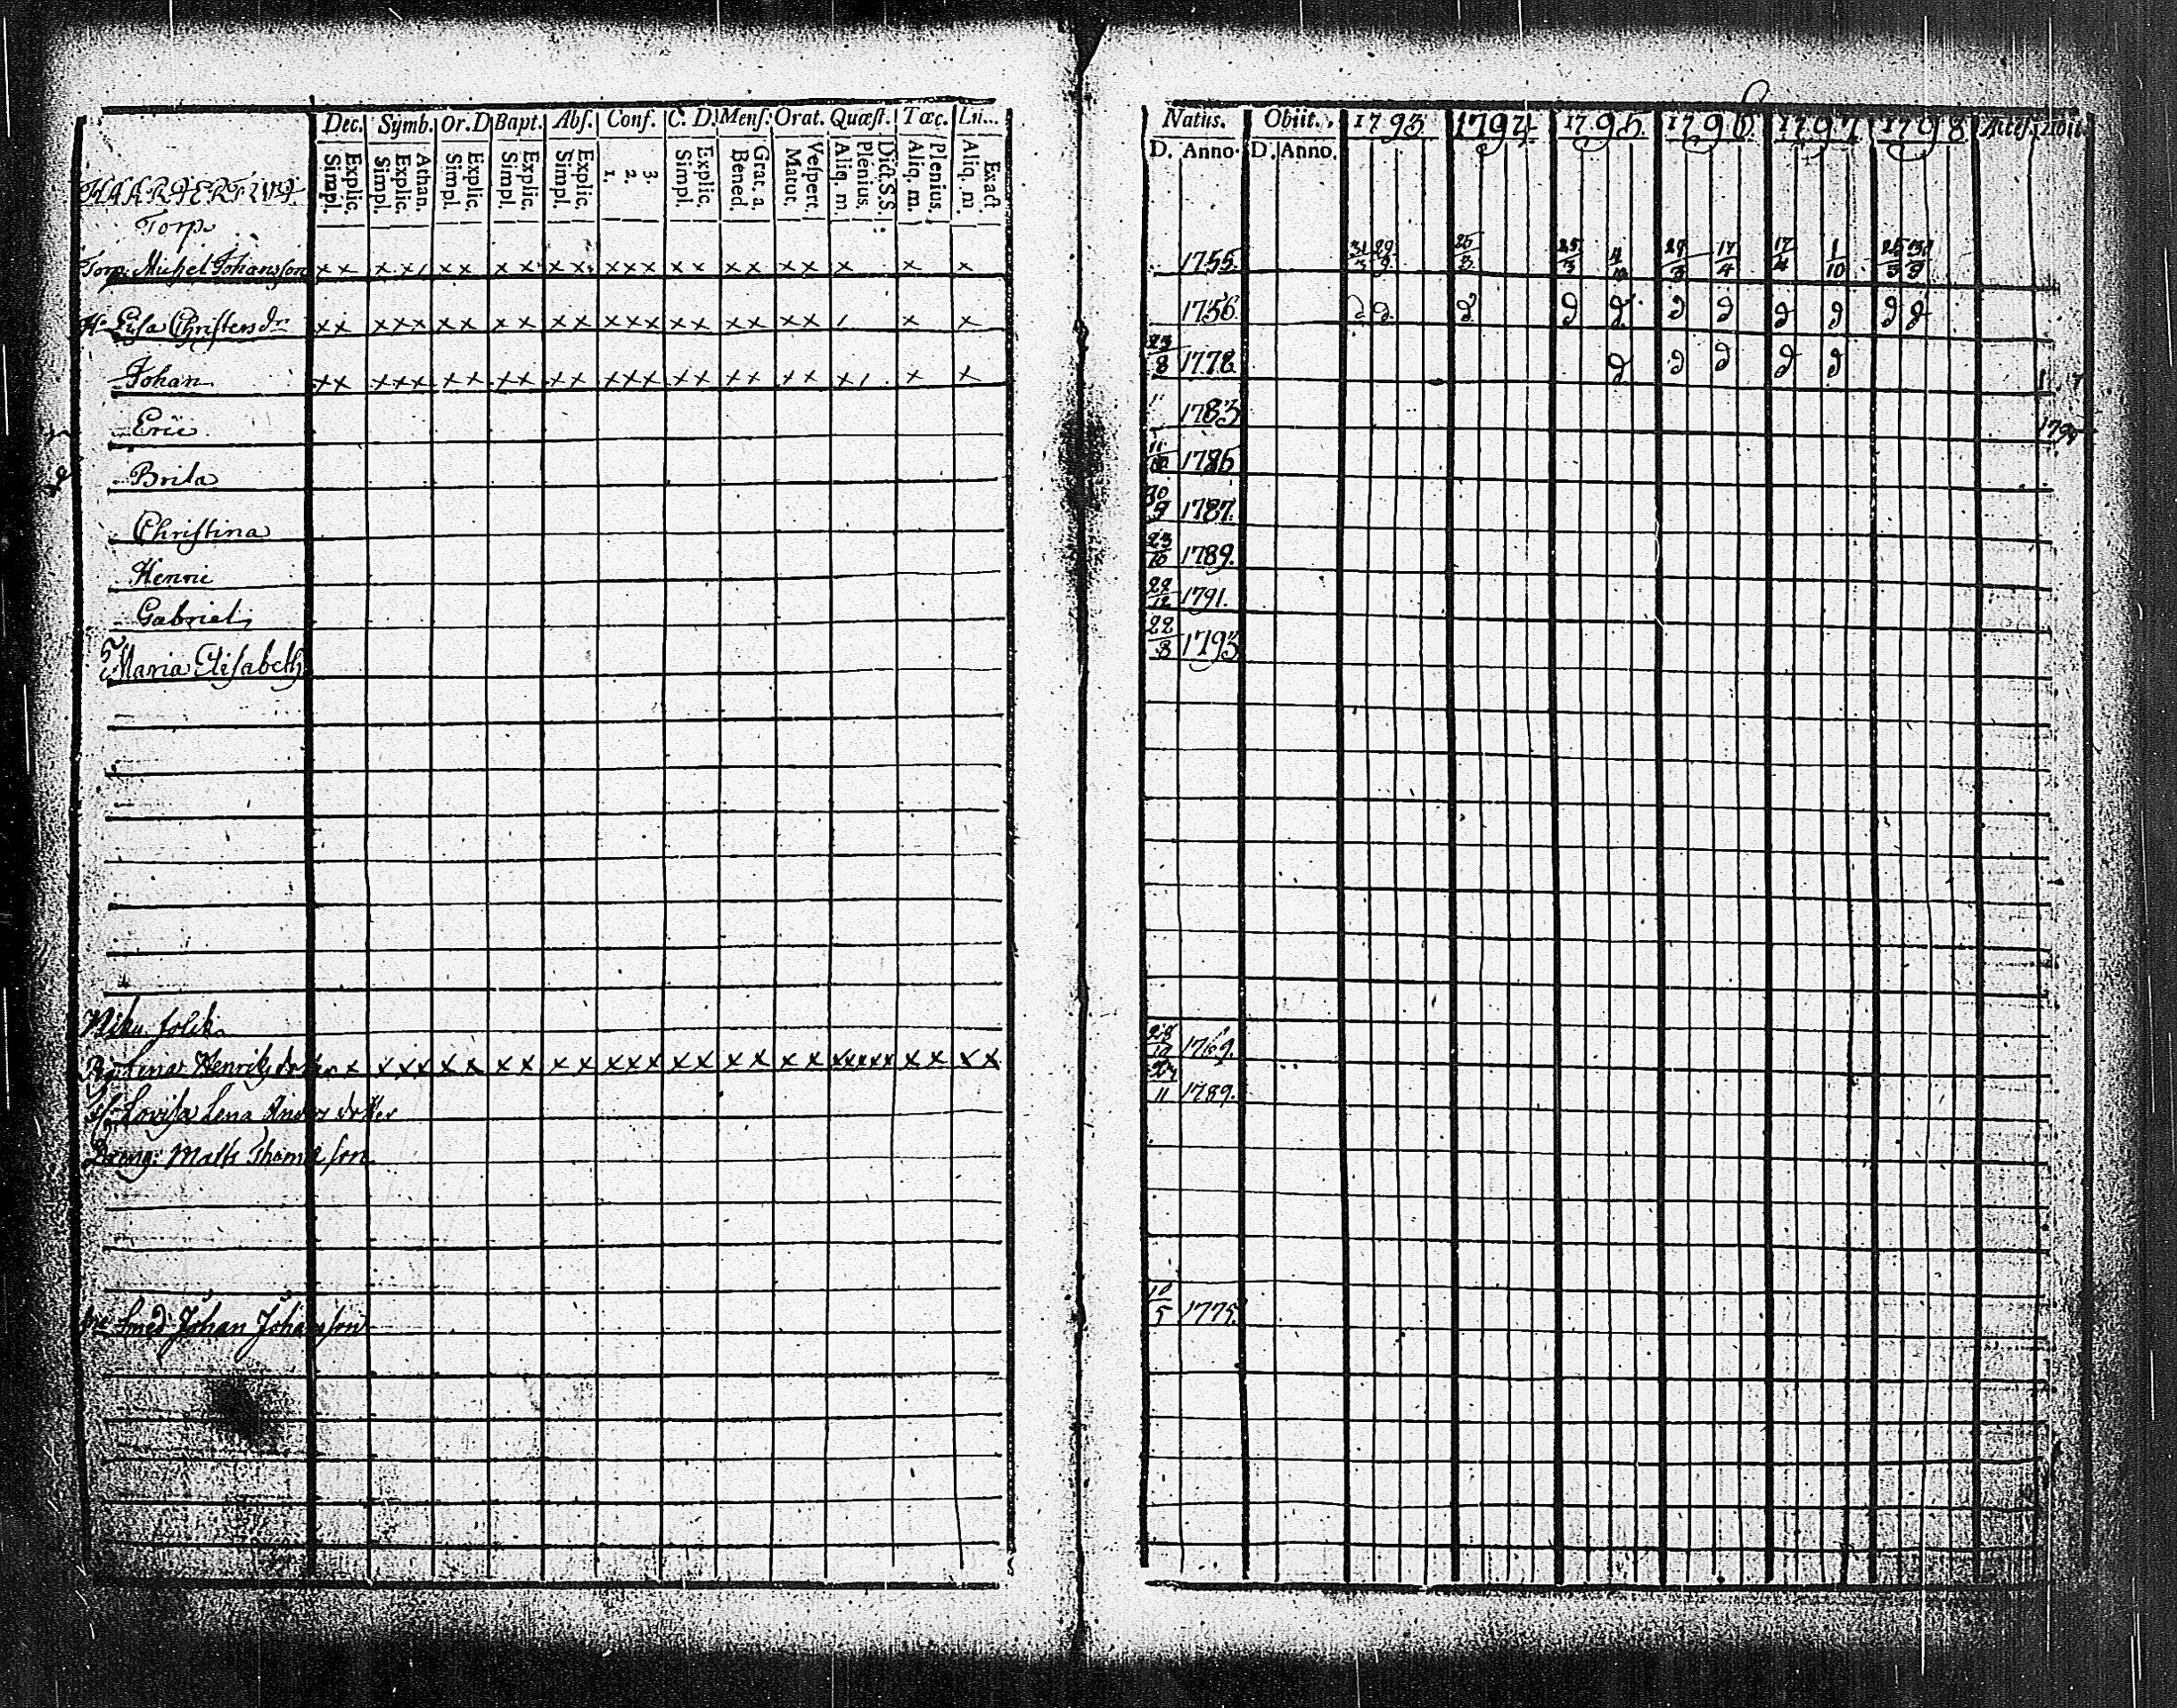 Dec. Symb. Or. D Bapt. Abs. Conf. C. D. Mens. Orat. Quæst. Tæc.
Explic. Simpl. Athan. Explic. Simpl. Explic. Simpl. Explic. Simpl. Explic. Simpl. 3. 2. 1. Explic. Simpl. Grat. a. Bened. Vespert. Matut. Dict. S.S. Plenius. Aliq. m. Plenius. Aliq. m. Exact Aliq. m.
Torp.
Torp. Michel Johansson x x x x x x x x x x x x x x x x x x x x x x x
H. Lisa Christersdr x x x x x x x x x x x x x x x x x x x x x x
Johan x x x x x x x x x x x x x x x x x x x x x x x
Eric
Brita
Christina
Henric
Gabriel
Maria Elisabeth
folck
Lena Henriksdotter x x x x x x x x x x x x x x x x x x x x x x x x x x x x
Lovisa Lena Anders dotter
Dreng: Matts Thomasson
Smed Johan Johansson
Natus. Obiit. 1793 1794 1795 1796 1797 1798 Acces. Abiit
D. Anno D. Anno.
1755. 31/3 29/9 25/3 17/4 17/4 1/10
1756
23/8 1778
1783
1786
30/9 1787.
23/10 1789.
22/12 1791.
22/8 1793
1769.
11 1789.
10/5 1775.